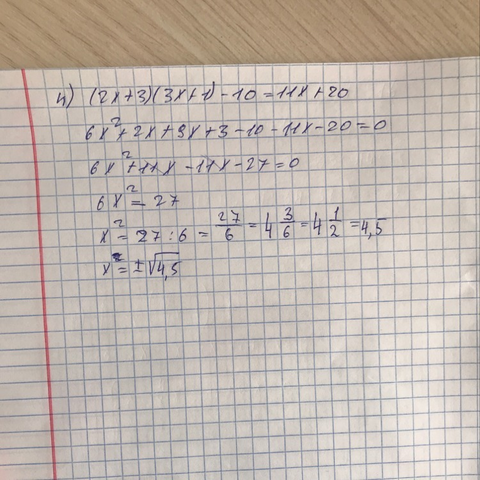 4) (2x+3)(3x+1)-10=11x+20
6x²+2x+9x+3-10-11x-20=0
6x²+11x-11x-27=0
6x²=27
x²=27:6=27/6=4 3/6=4 1/2=4,5
x²=±√4,5